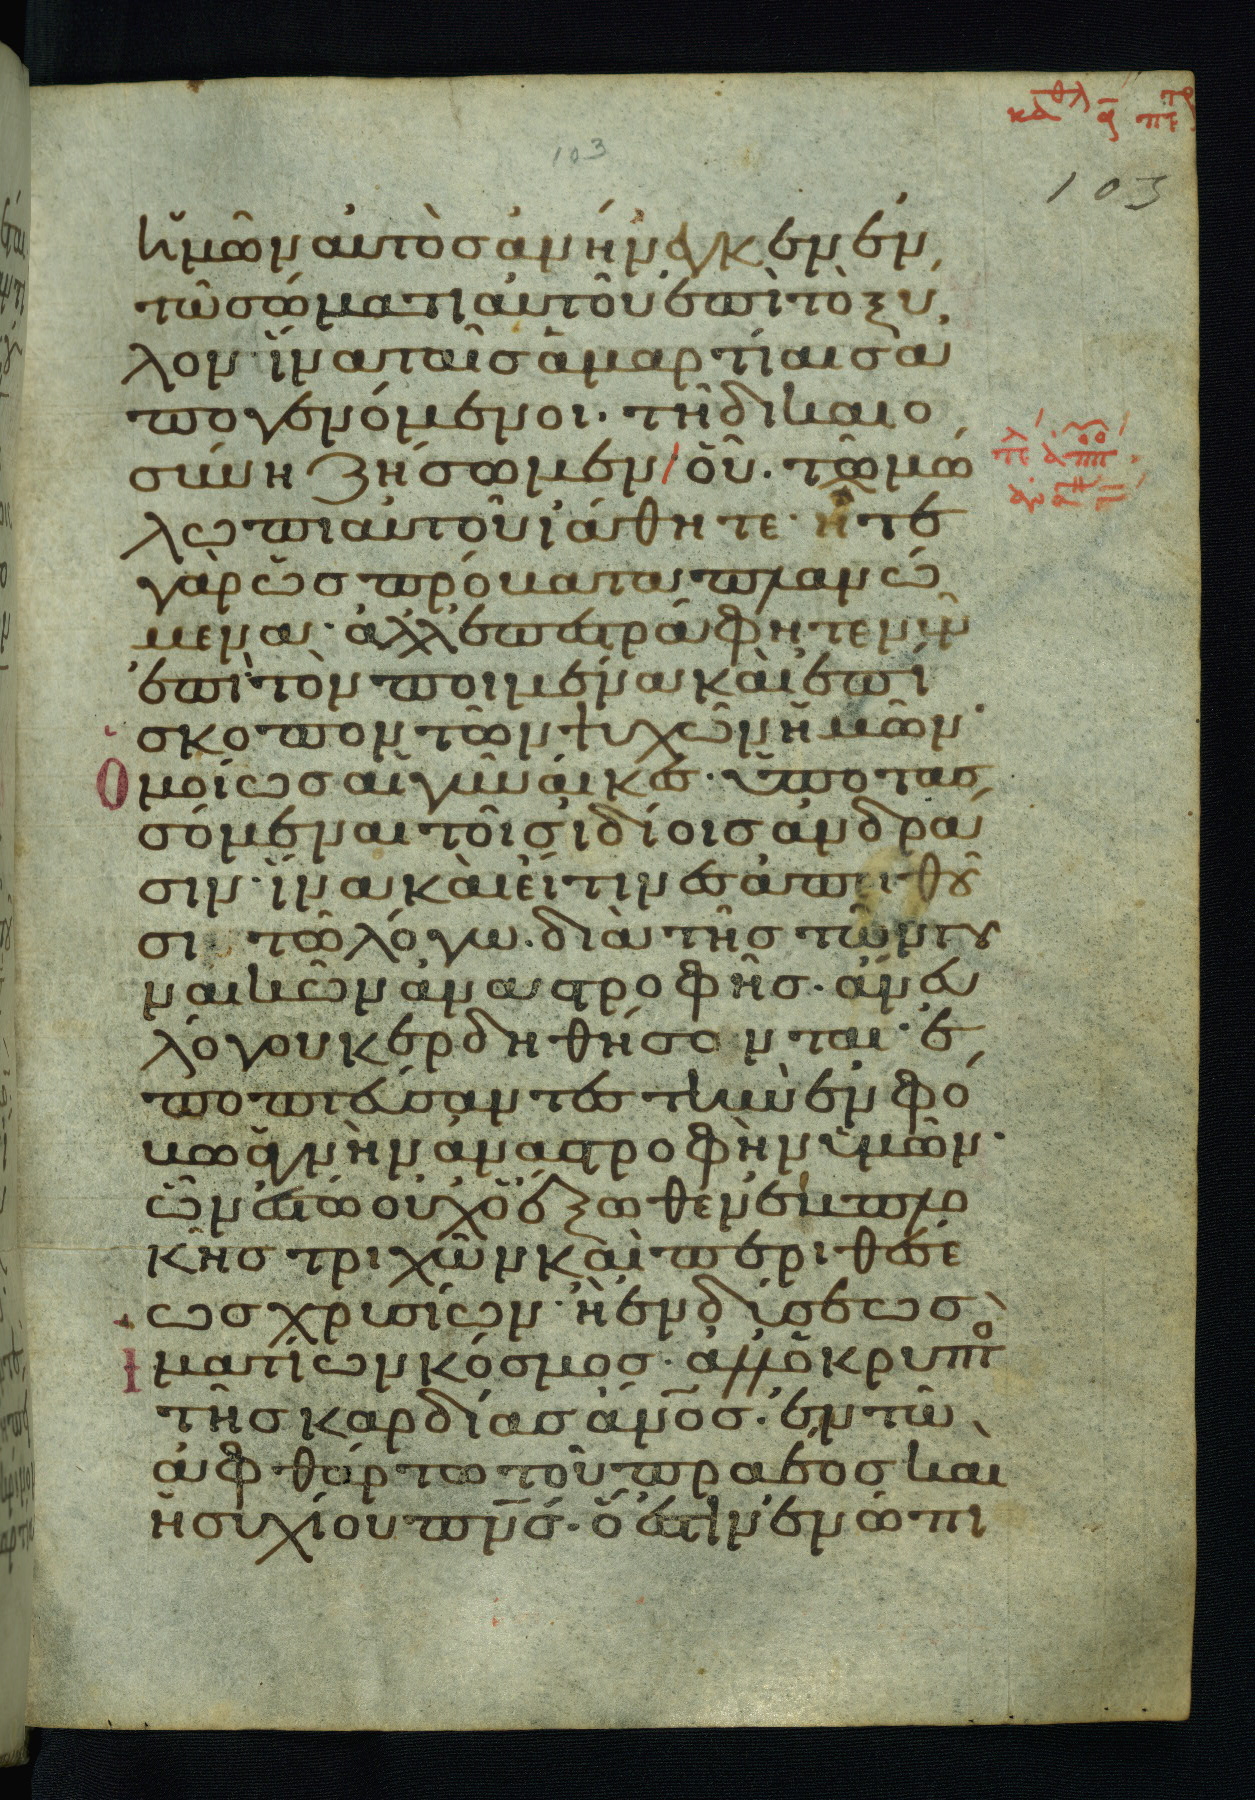 καθλ α πετρ
103
103
ἡμῶν αὐτὸς ἀνήνεγκεν ἐν
τῶ σώματι αὐτοῦ ἐπὶ τὸ ξύ
λον· ἵνα ταῖς ἁμαρτίαις ἀ
πογενόμενοι· τῆ δικαιο
σύνη ζήσωμεν / οὗ· τῶ μώ
λωπι αὐτοῦ ἰάθητε· ἦτε
γὰρ ὡς πρόβατα πλανώ
μενα· ἀλλ' ἐπεστράφητε νῦν
ἐπὶ τὸν ποιμένα καὶ ἐπί
σκοπον τῶν ψυχῶν ἡμῶν·
Ομοίως αἱ γυναίκες· ὑποτας
σόμεναι τοῖς ἰδίοις ἀνδρά
σιν· ἵνα καὶ εἴ τινες ἀπειθοῦ
σι τῶ λόγω· διὰ τῆς τῶν γυ
ναικῶν ἀναστροφῆς· ἄνευ
λόγου κερδηθήσονται· ἐ
ποπτεύσαντες τὴν ἐν φό
βω ἁγνὴν ἀναστροφὴν ὑμῶν·
ὧν ἔστω οὐχ ὁ ἔξωθεν ἐμπλο
κῆς τριχῶν καὶ περιθέσε
ως χρυσίων· ἢ ἐνδύσεως
Ιματίων κόσμος· ἀλλ' ὁ κρυπτὸ
τῆς καρδίας ἄνος· ἐν τῶ
ἀφθάρτω τοῦ πραέος καὶ
ἡσυχίου πνς· ὅ ἐστιν ἐνώπι